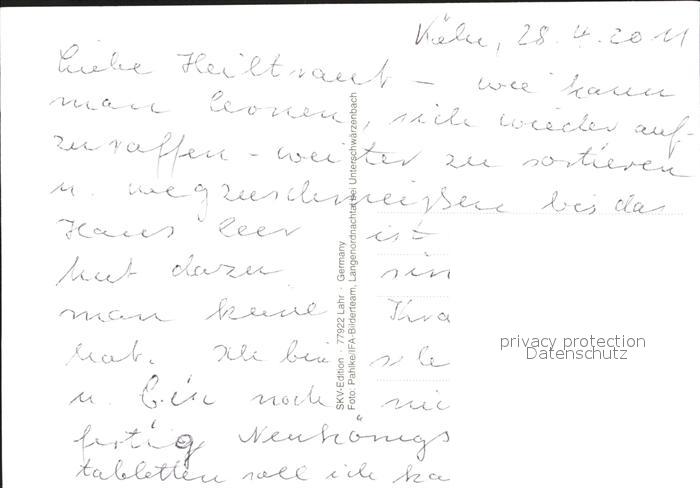 Köln, 28.4.2011
Liebe Heiltraut – wie kann
man lernen, sich wieder auf-
zuraffen – weiter zu sortieren
u. wegzuschmeißen bis das
Haus leer ist
hat dazu
man keine Kra
hat. Ich bin
u. bin noch nic
fertig Neukönigs
tabletten soll ich ka
SKV-Edition · 77922 Lahr · Germany
Foto: Pahlke/IFA-Bilderteam, Langenordnachtal bei Unterschwärzenbach
privacy protection
Datenschutz